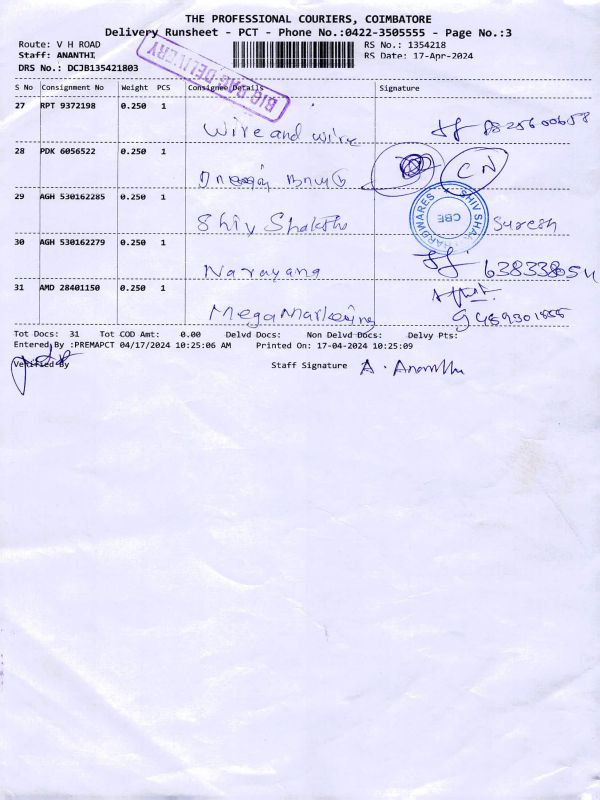 THE PROFESSIONAL COURIERS, COIMBATORE
Delivery Runsheet - PCT - Phone No.:0422-3505555 - Page No.:3
Route: V H ROAD
RS No.: 1354218
Staff: ANANTHI
RS Date: 17-Apr-2024
DRS No.: DCJB135421803
BIG BAG DELIVERY
S No Consignment No Weight PCS Consignee Details Signature
27 RPT 9372198 0.250 1
Wire and wire
28 PDK 6056522 0.250 1
CN
29 AGH 530162285 0.250 1
Shiv Shakthi Suresh
HARDWARES CBE
30 AGH 530162279 0.250 1
Narayana
31 AMD 28401150 0.250 1
Mega Marketing
Tot Docs: 31 Tot COD Amt: 0.00 Delvd Docs: Non Delvd Docs: Delvy Pts:
Entered By :PREMAPCT 04/17/2024 10:25:06 AM Printed On: 17-04-2024 10:25:09
Verified By Staff Signature A. Ananthi